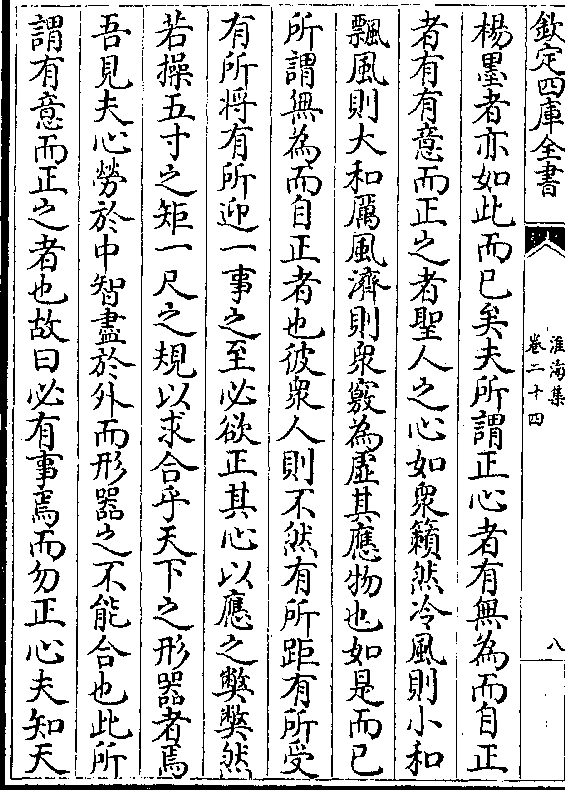 欽定四庫全書
淮海集
卷二十四
八
楊墨者亦如此而已矣夫所謂正心者有無為而自正
者有有意而正之者聖人之心如衆籟然冷風則小和
飄風則大和厲風濟則衆竅為虛其應物也如是而已
所謂無為而自正者也彼衆人則不然有所距有所受
有所将有所迎一事之至必欲正其心以應之弊弊然
若操五寸之矩一尺之規以求合乎天下之形器者焉
吾見夫心勞於中智盡於外而形器之不能合也此所
謂有意而正之者也故曰必有事焉而勿正心夫知天